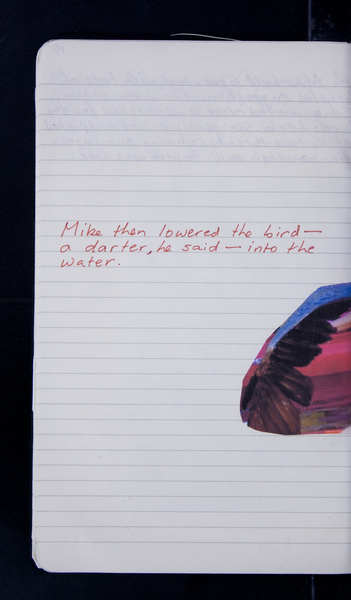 Mike then lowered the bird —
a darter, he said — into the
water.